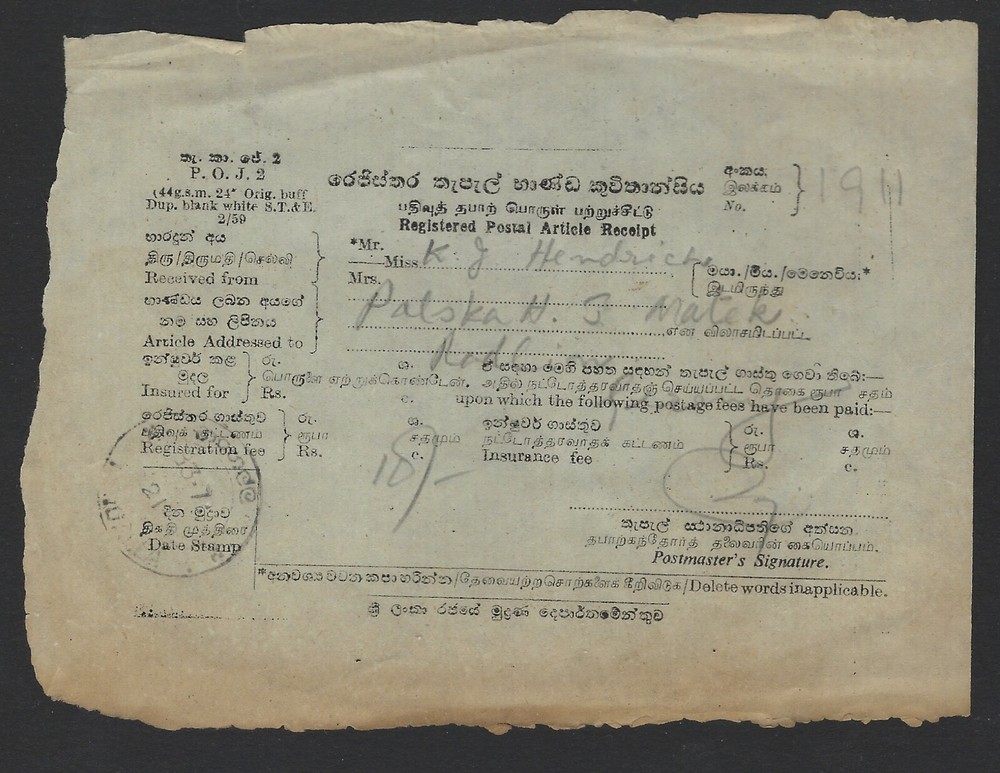 තැ. කා. ජේ. 2
P. O. J. 2
(44g.s.m. 24" Orig. buff
Dup. blank white S.T.&E.
2/59
රෙජිස්තර තැපැල් භාණ්ඩ කුවිතාන්සිය
பதிவுத் தபாற் பொருள் பற்றுச்சீட்டு
Registered Postal Article Receipt
අංකය
இலக்கம்
No.
1911
භාරදුන් අය
திரு/திருமதி/செல்வி
Received from
*Mr.
Miss
Mrs.
K J Hendricks
මයා./මිය./මෙනෙවිය*
இடமிருந்து
භාණ්ඩය ලබන අයගේ
නම සහ ලිපිනය
Article Addressed to
Polska H. S Matek
என விலாசமிடப்பட்ட
ඉන්ෂුවර් කළ
මුදල
Insured for
රු. ශ. ඒ සඳහා මෙහි පහත සඳහන් තැපැල් ගාස්තු ගෙවා තිබේ:—
பொருளை ஏற்றுக்கொண்டேன். அதில் நட்டோத்தரவாதஞ் செய்யப்பட்ட தொகை ரூபா சதம்
Rs. c. upon which the following postage fees have been paid:—
රෙජිස්තර ගාස්තුව
பதிவுக் கட்டணம்
Registration fee
රු. ශ.
ரூபா சதமும்
Rs. c.
ඉන්ෂුවර් ගාස්තුව
நட்டோத்தரவாதக் கட்டணம்
Insurance fee
රු. ශ.
ரூபா சதமும்
Rs. c.
දින මුද්‍රාව
திகதி முத்திரை
Date Stamp
තැපැල් ස්ථානාධිපතිගේ අත්සන
தபாற்கந்தோர்த் தலைவரின் கையொப்பம்.
Postmaster's Signature.
*අනවශ්‍ය වචන කපා හරින්න/தேவையற்ற சொற்களைக் கீறிவிடுக/Delete words inapplicable.
ශ්‍රී ලංකා රජයේ මුද්‍රණ දෙපාර්තමේන්තුව